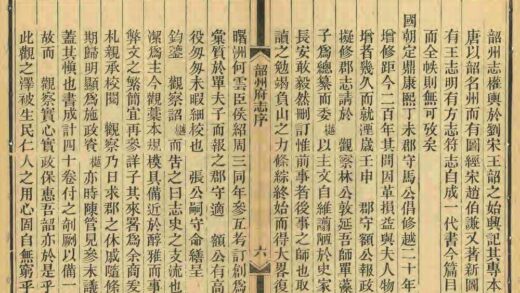 韶州志權輿於劉宋王韶之始興記其專本
唐以韶名州而有圖經宋趙伯謙又著新圖
有王志明有方志符志自成一代書今篇目
而全帙則無可攷矣
國朝定鼎康熙丁未郡守馬公倡修越二十年
增修距今二百年其間因革損益與夫人物
增者幾久而就湮歲壬申 郡守額公報政
擬修郡志請於 觀察林公敦延吾師單藥
子爲總纂而委 以主文自維譾陋於史家
長安敢毅然刪訂惟前事者後事之師也取
讀之勉竭負山之力條綜終始而得大畧復
韶州府志序
六
曙洲何雲臣侯紹周三同年參互考訂創爲
彙質於單夫子而報之郡守適 額公有高
役匆匆未暇細校也 張公嗣守命繕呈
鈞鑒 觀察詔 而告之曰志史之支流也
潔爲主今觀藁本規模具備近於醇雅而事
弊文之繁簡宜再參詳子其來署爲余商爰
札親承校閱 觀察乃日求郡之休戚隱條
期歸明顯爲施政資 亦時陳管見參末議
蓋其愼也書成計四十卷付之剞劂以備一
故而 觀察實心實政保惠吾韶亦於是乎
此觀之澤被生民仁人之用心固自無窮乎